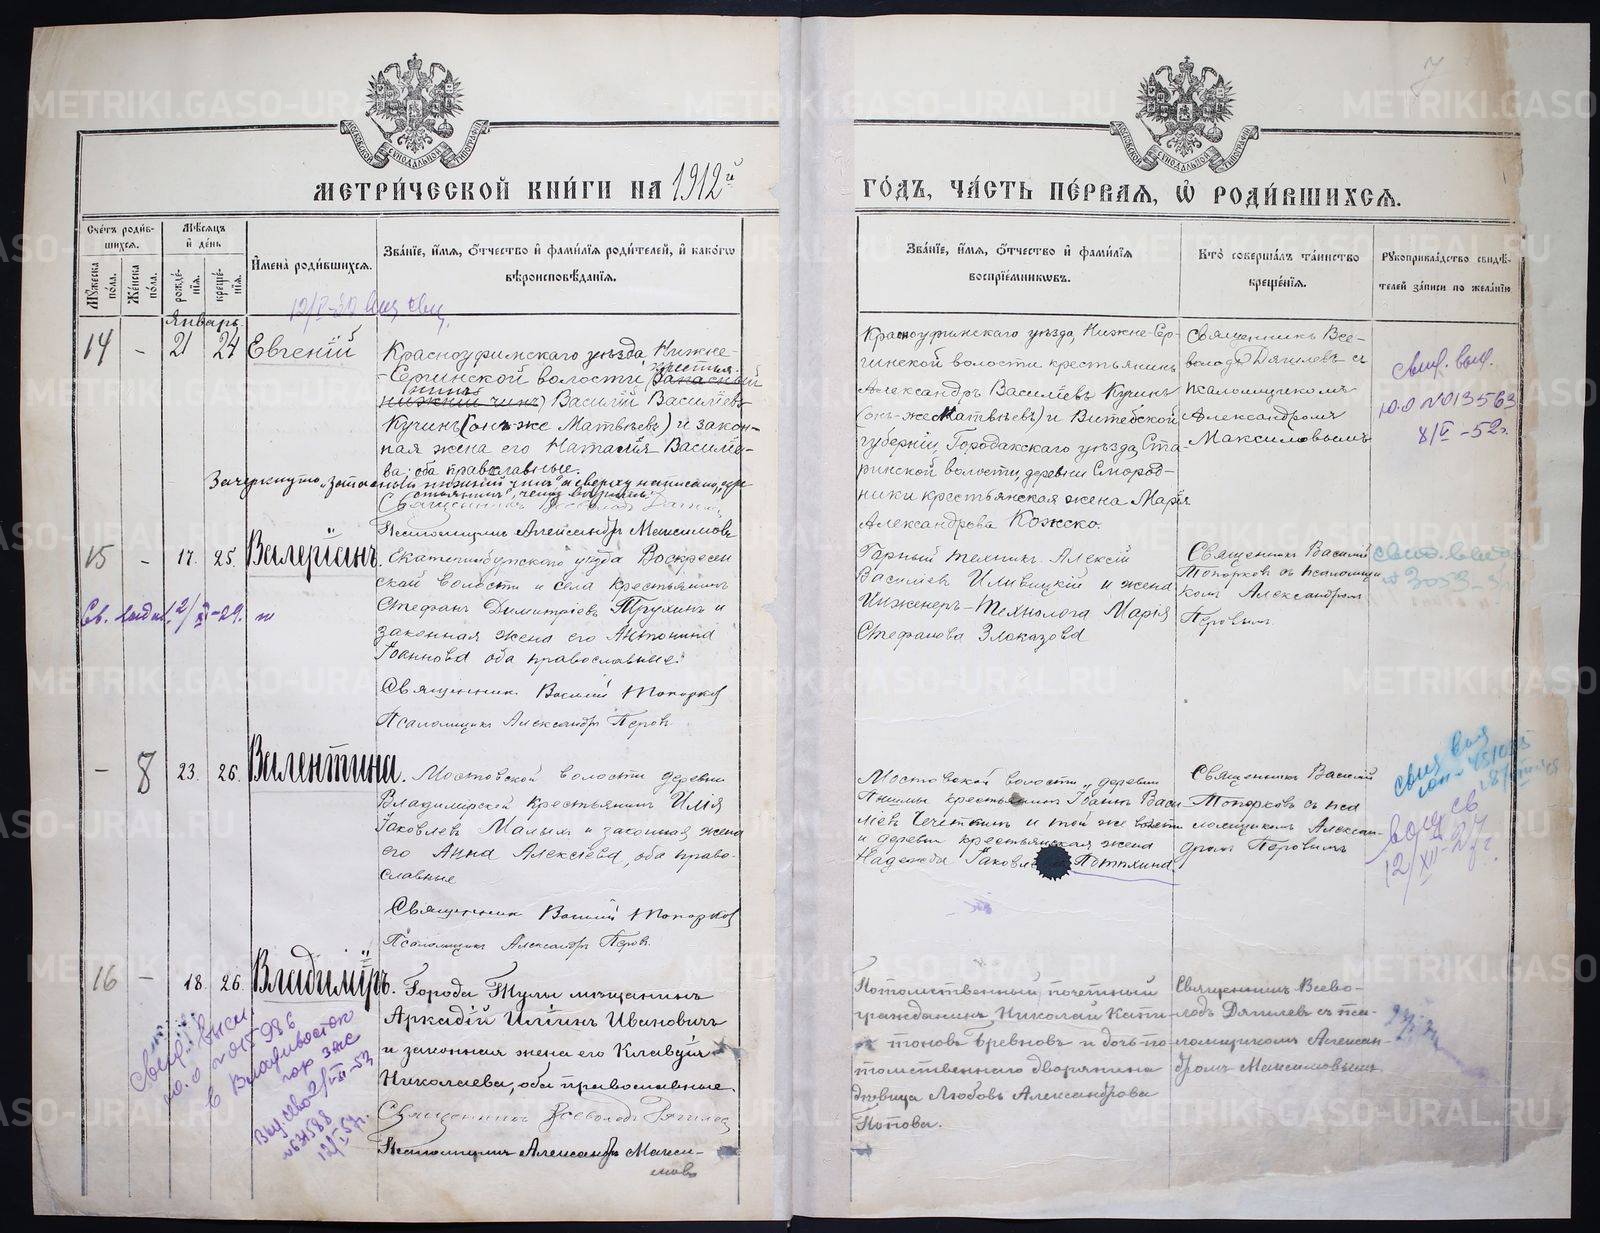 МЕТРИ́ЧЕСКОЙ КНИ́ГИ НА 1912й
ГО́ДЪ, ЧА́СТЬ ПЕ́РВАЯ, Ѿ РОДИ́ВШИХСѦ.
Сче́тъ роди́в-
шихся.
Мѣсяцъ
и день
Мꙋжеска
пола.
Же́нска
пола.
рожде́-
нія.
креще́-
нія.
И̓мена̀ роди́вшихся.
Зва́ніе, и́мя, о́тчество и фами́лія роди́телей, и како́гѡ
вѣроисповѣ́данія.
Зва́ніе, и́мя, о́тчество и фами́лія
воспріе́мниковъ.
Кто̀ соверша́лъ та́инство
креще́нія.
Рꙋкоприкла́дство свидѣ́-
телей за́писи по жела́нію
Январь
14 - 21 24 Евгеній
Красноуфимскаго уѣзда, Нижне-
Сергинской волости крестья-
нинъ (запасный
нижній чинъ) Василій Васильевъ
Кучинъ (онъ-же Матвѣевъ) и закон-
ная жена его Наталія Василье-
ва, оба православные.
Зачеркнуто „запасный нижній чинъ" а сверху написано „кре-
стьянинъ", чему вѣрить.
Псаломщикъ Александръ Максимовъ
Красноуфимскаго уѣзда, Нижне-Сер-
гинской волости крестьянинъ
Александръ Васильевъ Кучинъ
(онъ-же Матвѣевъ) и Витебской
губерніи, Городокскаго уѣзда, Ста-
ринской волости, деревни Смород-
ники крестьянская жена Марія
Александрова Кожско.
Священникъ Все-
володъ Дягилевъ съ
псаломщикомъ
Александромъ
Максимовымъ
свид. выд.
Ю.О №013563
8/V -52г.
15 - 17. 25. Валеріанъ.
Екатеринбургскаго уѣзда Воскресен
ской волости и села крестьянинъ
Стефанъ Димитріевъ Трухинъ и
законная жена его Антонина
Іоаннова оба православные.
Священникъ Василій Топорковъ
Псаломщикъ Александръ Перовъ
Горный техникъ Алексій
Васильевъ Иливицкій и жена
Инженеръ-Технолога Марія
Стефанова Злоказова
Священникъ Василій
Топорковъ съ псаломщи
комъ Александромъ
Перовымъ
- 8 23. 26. Валентина.
Мостовской волости деревни
Владимірской крестьянинъ Илія
Іаковлевъ Малыхъ и законная жена
его Анна Алексіева, оба право-
славные
Священникъ Василій Топорковъ
Псаломщикъ Александръ Перовъ
Мостовской волости, деревни
Пышмы крестьянинъ Іоаннъ Васи
льевъ Чечеткинъ и той же волости
и деревни крестьянская жена
Надежда Іаковл Потяхина
Священникъ Василій
Топорковъ съ пса
ломщикомъ Алексан-
дромъ Перовымъ
12/XII -27г.
16 - 18. 26. Владиміръ.
Города Тулы мѣщанинъ
Аркадій Иліинъ Ивановичъ
и законная жена его Клавдія
Николаева, оба православные
Священникъ Всеволодъ Дягилевъ
Псаломщикъ Александръ Макси-
мовъ
Потомственный почетный
гражданинъ Николай Капи-
тоновъ Бревновъ и дочь по-
томственнаго дворянина
дѣвица Любовь Александрова
Попова.
Священникъ Всево-
лодъ Дягилевъ съ пса-
ломщикомъ Алексан-
дромъ Максимовымъ.